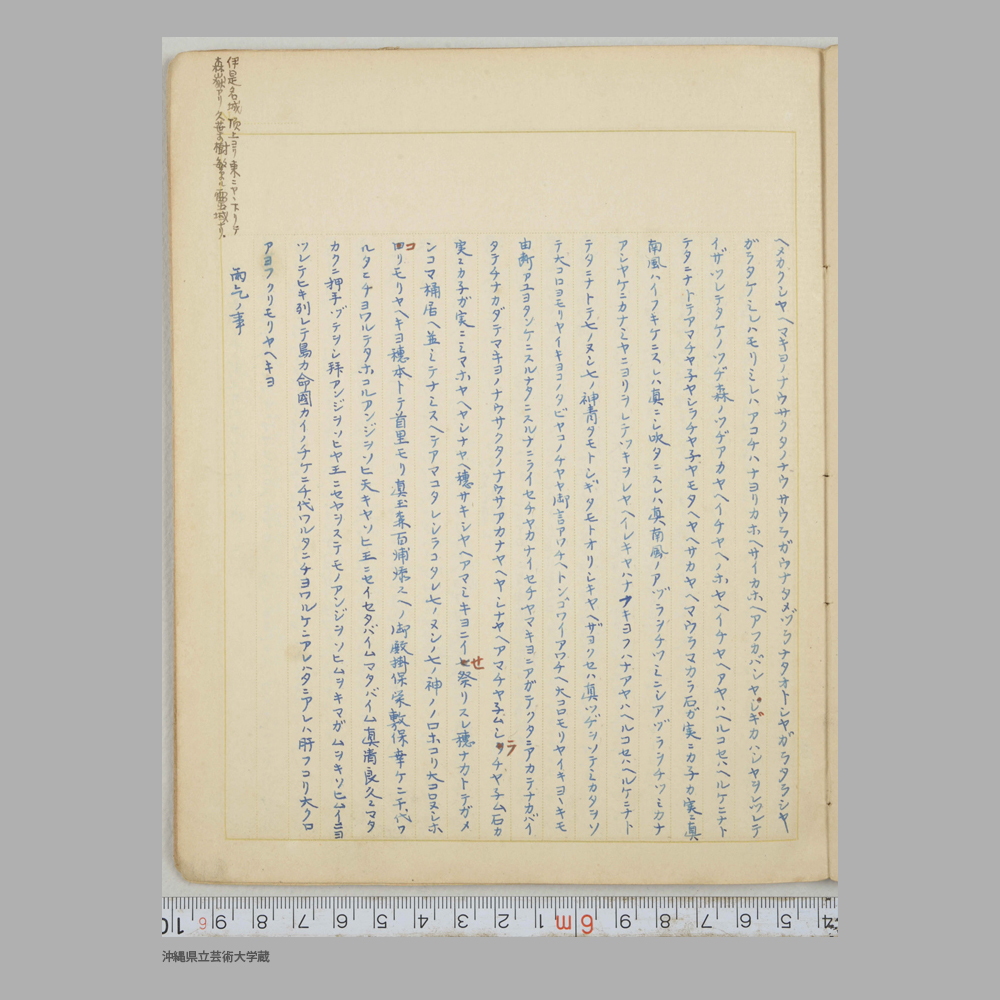 ヘメカクシヤヘマキヨノナウサクタノナウサウラガウナタメヅラナタオトシヤガラタラシヤ
ガラタケミレハモリミレハアコチハナヨリカホヘサイカホヘアフカバシヤレギカハシヤヲレツレテ
イザツレテタケノツヂ森ノツヂアカヤヘイチヤヘノホヤヘイチヤヘアヤハヘルコセハヘルケニナト
テタニナトテアマチヤ子ヤシラチヤ子ヤモタヘヤヘサカヤヘマウラマカラ石ガ実ニカ子カ実ニ真
南風ハイフキケニスレハ真ニシ吹タニスレハ真南風ノアヅラヲチツミニシアヅラヲチツミカナ
アシヤケニカナミヤニヨリヲレテツキヲレヤヘイレキヤハナクキヨフハナアヤハヘルコセハヘルケニナト
テタニナトテ七ノヌシ七ノ神青タモトシギタモトオリシキヤヘザヨクセハ真ツヂヲソテミカタヲソ
テ大コロヨモリヤイキヨコノタビヤコノチヤヤ御言アワチヘトンゴワイアワチヘ大コロモリヤイキヨヽキモ
由断アユヨタンケニスルナタニスルナニライセチヤカナイセチヤマキヨニアガテクタニアカテナカバイ
タテチナカダテマキヨノナウサクタノナウサアカナヤヘヤシナヤヘアマチヤ子ムシラチヤ子ム石カ
実ニカ子ガ実ニミマホヤヘヤシナヤヘ穂サキシヤヘアマミキヨニイセ祭リスレ穂ナカトテガメ
ンコマ桶居ヘ並ミテナミスヘテアマコタレシラコタレ七ノヌシノ七ノ神ノノロホコリ大コロヌシホ
コリモリヤヘキヨ穂本トテ首里モリ真玉森百浦添エヘノ御殿掛保栄敷保幸ケニ千代ワ
ルタヒチヨワルテタホコルアンジヲソヒ天キヤソヒ王ニセイセタバイムマタバイム真清良久ニマタ
カクニ押手ヅテヲシ拜アンジヲソヒヤ王ニセヤヲステモノアンジヲソヒムヲキマガムヲキソヒムイニヨ
ツレテヒキ列レテ島カ命國カイノチケニ千代ワルタニチヨワルケニアレハタニアレハ肝フコリ大クロ
アヨフクリモリヤヘキヨ
雨乞ノ事
伊是名城頂上ヨリ東ニヤヽ下リタ
森嶽アリ久葉樹繁ル
沖縄県立芸術大学蔵